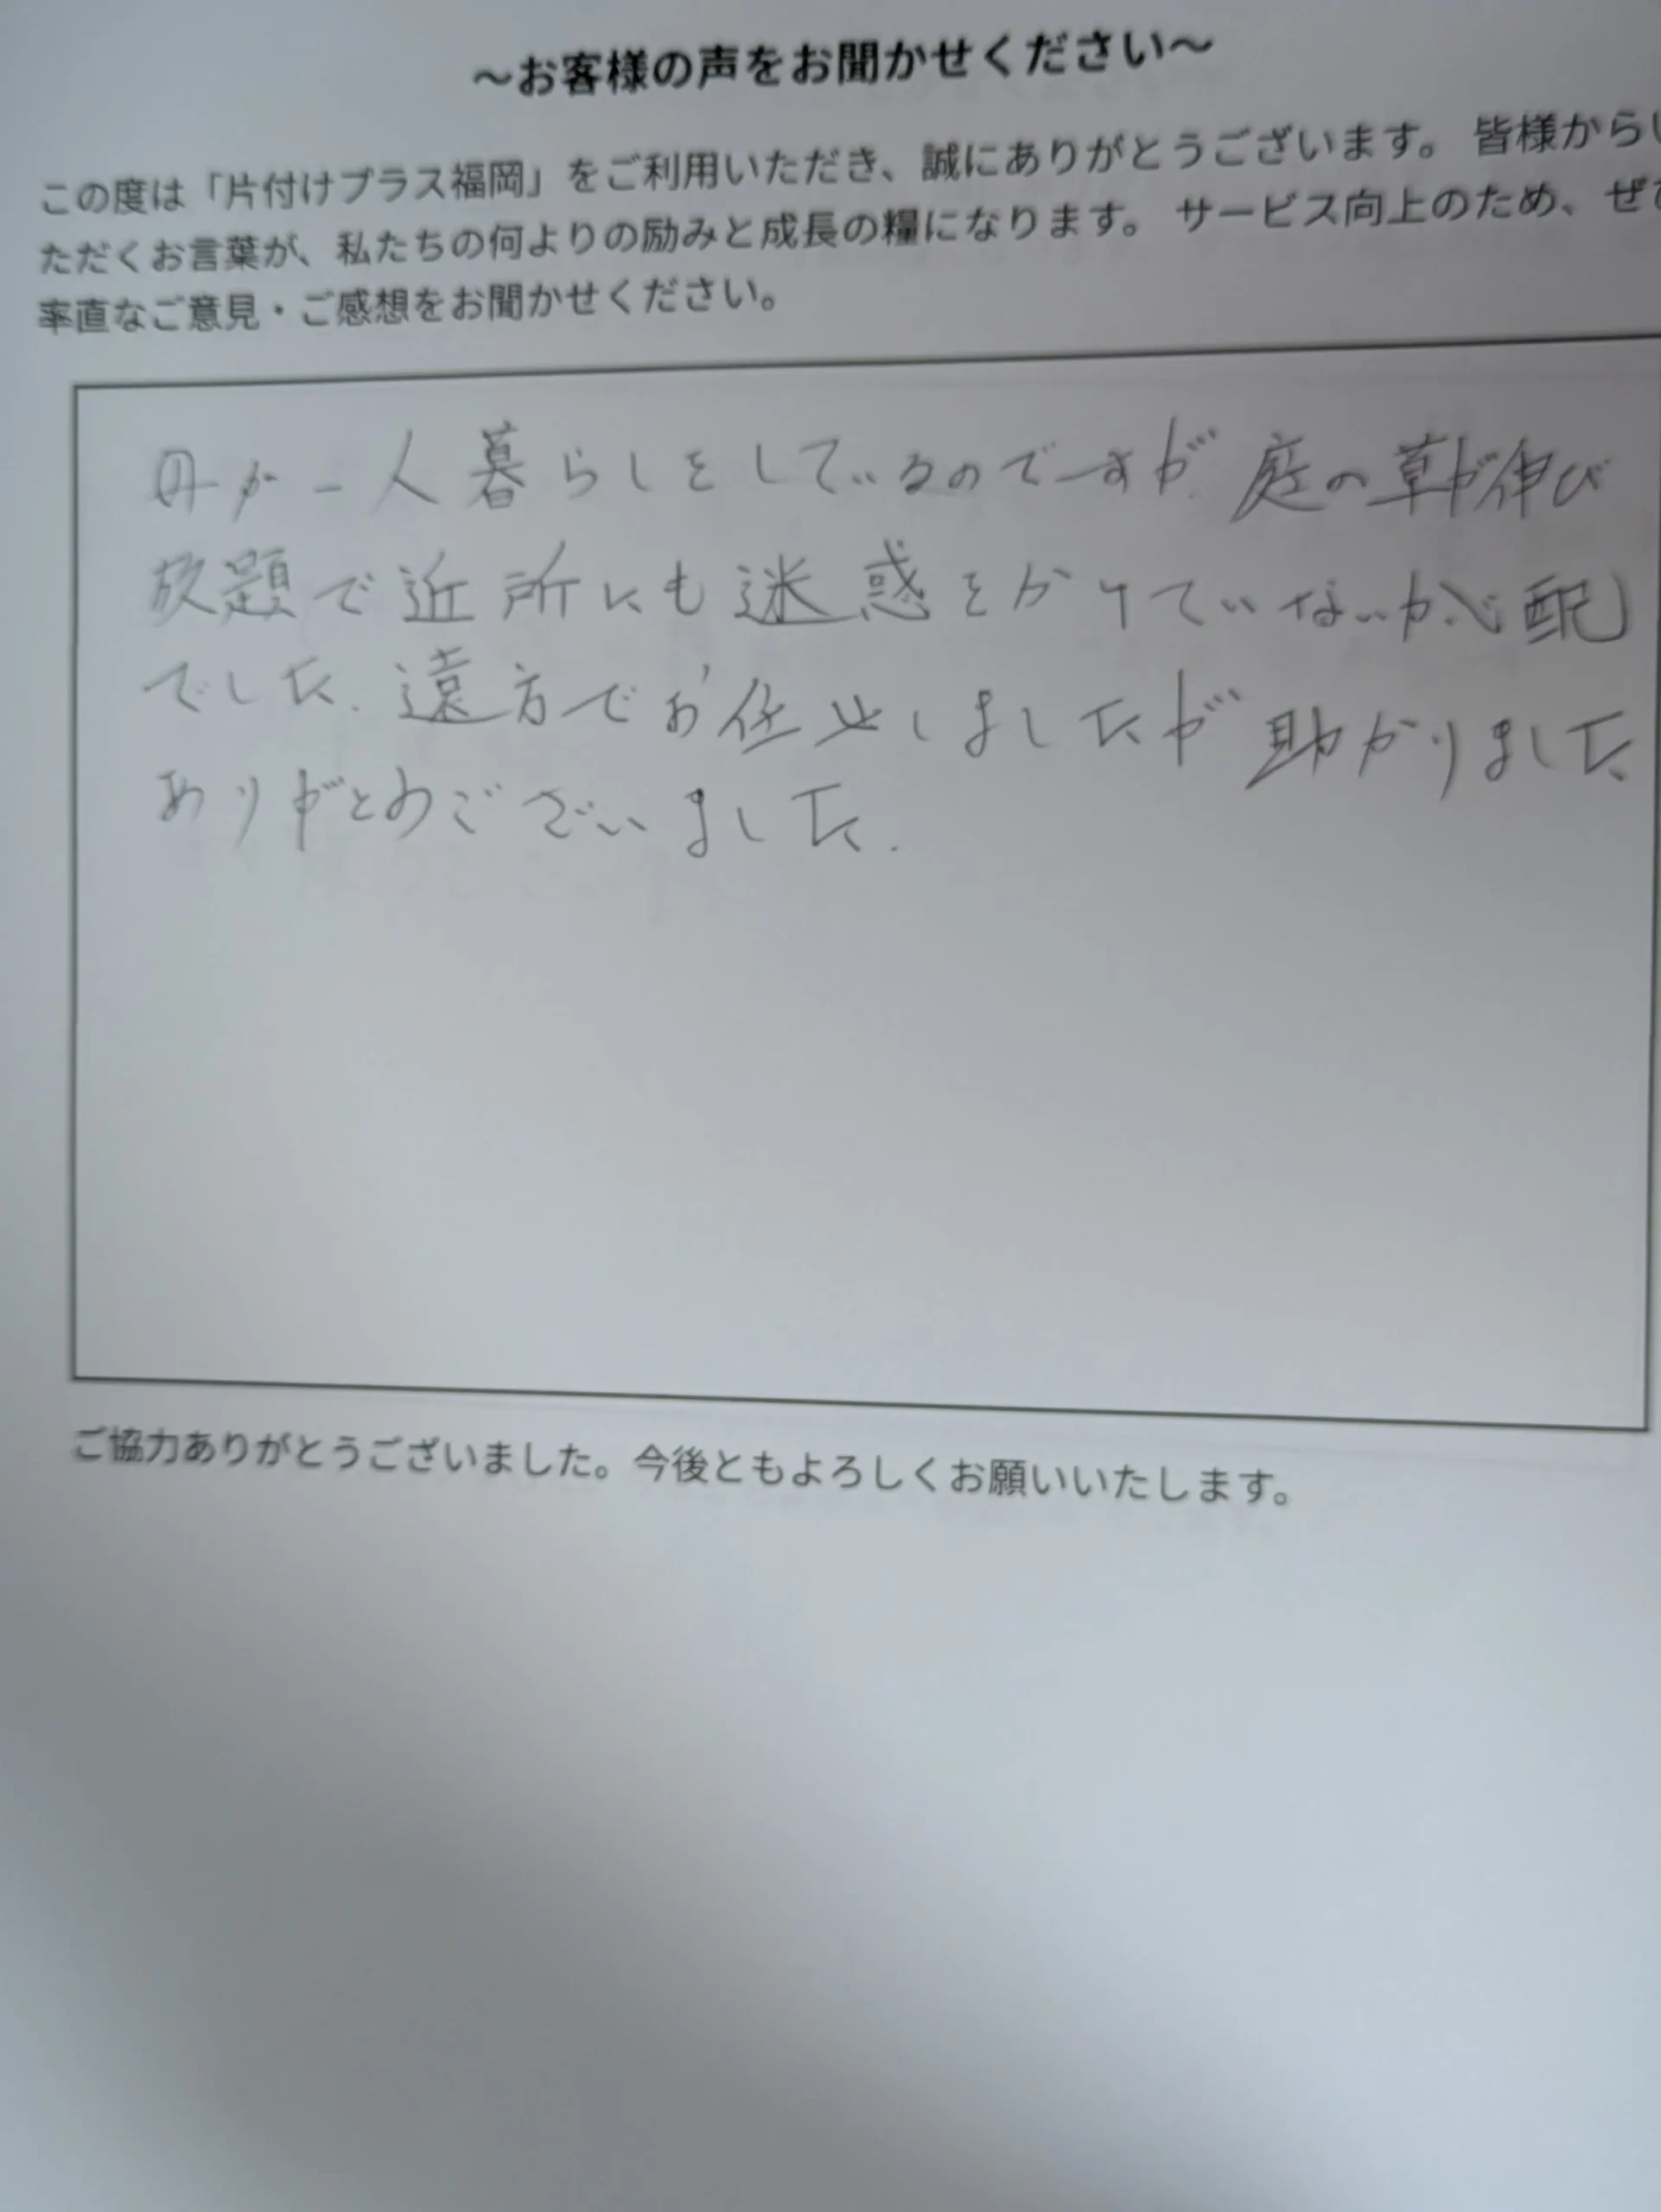 ～お客様の声をお聞かせください～
この度は「片付けプラス福岡」をご利用いただき、誠にありがとうございます。 皆様からい
ただくお言葉が、私たちの何よりの励みと成長の糧になります。 サービス向上のため、ぜひ
率直なご意見・ご感想をお聞かせください。
母が一人暮らしをしているのですが、庭の草が伸び
放題で近所にも迷惑をかけていないか心配
でした。遠方でお任せしましたが助かりました
ありがとうございました。
ご協力ありがとうございました。今後ともよろしくお願いいたします。